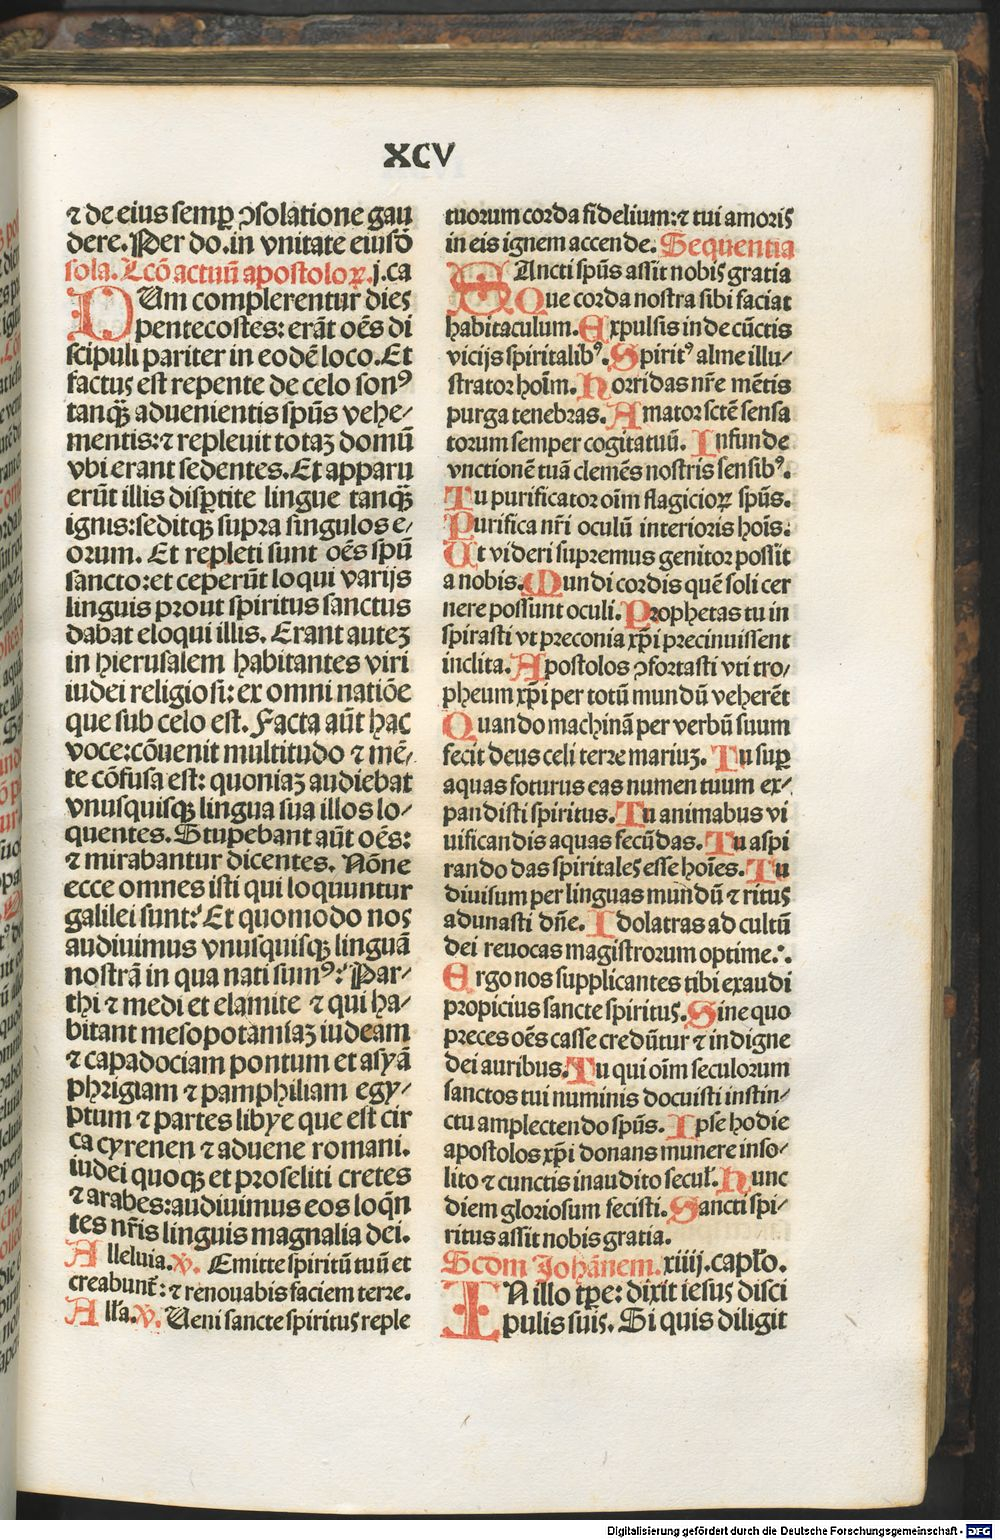 XCV
⁊ de eius semꝑ ↄsolatione gau
dere. Per do. in vnitate eiusdē
sola. Lcō actuū apostoloꝝ. j. ca
DUm complerentur dies
pentecostes: erāt oēs di
scipuli pariter in eodē loco. Et
factus est repente de celo sonꝰ
tanq̄ȝ aduenientis sp̄us vehe-
mentis: ⁊ repleuit totaȝ domū
vbi erant sedentes. Et apparu
erūt illis disꝑtite lingue tanq̄ȝ
ignis: seditqȝ supra singulos e-
orum. Et repleti sunt oēs sp̄u
sancto: et ceperūt loqui varijs
linguis prout spiritus sanctus
dabat eloqui illis. Erant auteȝ
in hierusalem habitantes viri
iudei religiosi: ex omni natiōe
que sub celo est. Facta aūt hac
voce: cōuenit multitudo ⁊ mē-
te cōfusa est: quoniaȝ audiebat
vnusquisqȝ lingua sua illos lo-
quentes. Stupebant aūt oēs:
⁊ mirabantur dicentes. Nōne
ecce omnes isti qui loquuntur
galilei sunt: Et quomodo nos
audiuimus vnusquisqȝ linguā
nostrā in qua nati sumꝰ: Par-
thi ⁊ medi et elamite ⁊ qui ha-
bitant mesopotamiaȝ iudeam
⁊ capadociam pontum et asyā
phrigiam ⁊ pamphiliam egy-
ptum ⁊ partes libye que est cir
ca cyrenen ⁊ aduene romani.
iudei quoqȝ et proseliti cretes
⁊ arabes: audiuimus eos loqn̄
tes nr̄is linguis magnalia dei.
Alleluia. ℣. Emitte spiritū tuū et
creabunt̄: ⁊ renouabis faciem terre.
All'a. ℣. Ueni sancte spiritus reple
tuorum corda fidelium: ⁊ tui amoris
in eis ignem accende. Sequentia
SAncti sp̄us assit nobis gratia
Que corda nostra sibi faciat
habitaculum. Expulsis inde cūctis
vicijs spiritalibꝰ. Spiritꝰ alme illu-
strator hoīm. Horridas nr̄e mētis
purga tenebras. Amator sctē sensa
torum semper cogitatuū. Infunde
vnctionē tuā clemēs nostris sensibꝰ.
Tu purificator oīm flagicioꝝ sp̄us.
Purifica nr̄i oculū interioris hoīs:
Ut videri supremus genitor possit
a nobis. Mundi cordis quē soli cer
nere possunt oculi. Prophetas tu in
spirasti vt preconia xp̄i precinuissent
inclita. Apostolos ↄfortasti vti tro-
pheum xp̄i per totū mundū veherēt
Quando machinā per verbū suum
fecit deus celi terre mariuȝ. Tu suꝑ
aquas foturus eas numen tuum ex-
pandisti spiritus. Tu animabus vi
uificandis aquas fecūdas. Tu aspi
rando das spiritales esse hoīes. Tu
diuisum per linguas mundū ⁊ ritus
adunasti dn̄e. Idolatras ad cultū
dei reuocas magistrorum optime.
Ergo nos supplicantes tibi exaudi
propicius sancte spiritus. Sine quo
preces oēs casse credūtur ⁊ indigne
dei auribus. Tu qui oīm seculorum
sanctos tui numinis docuisti instin-
ctu amplectendo sp̄us. Ipse hodie
apostolos xp̄i donans munere inso-
lito ⁊ cunctis inaudito secul'. Hunc
diem gloriosum fecisti. Sancti spi-
ritus assit nobis gratia.
Scdm Johānem. xiiij. capło.
IN illo tꝑe: dixit iesus disci
pulis suis. Si quis diligit
Digitalisierung gefördert durch die Deutsche Forschungsgemeinschaft - DFG